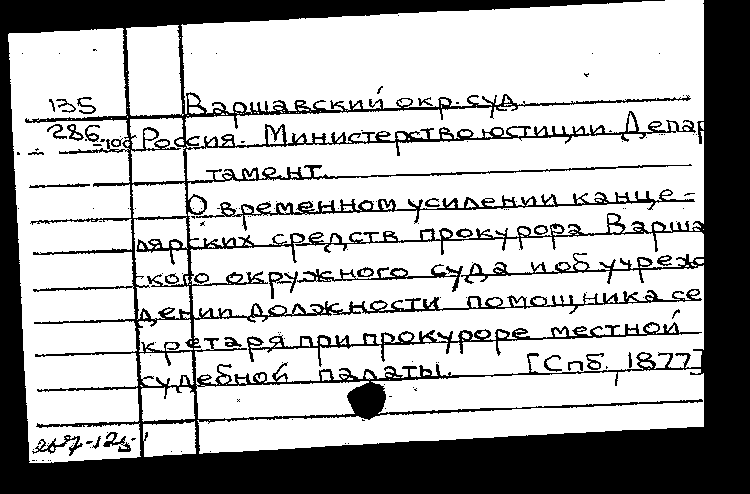 135 Варшавский окр. суд.
286 Россия. Министерство юстиции. Депар
тамент.
О временном усилении канце-
лярских средств прокурора Варша
ского окружного суда и об учреж
дении должности помощника се
кретаря при прокуроре местной
судебной палаты. [Спб, 1877]